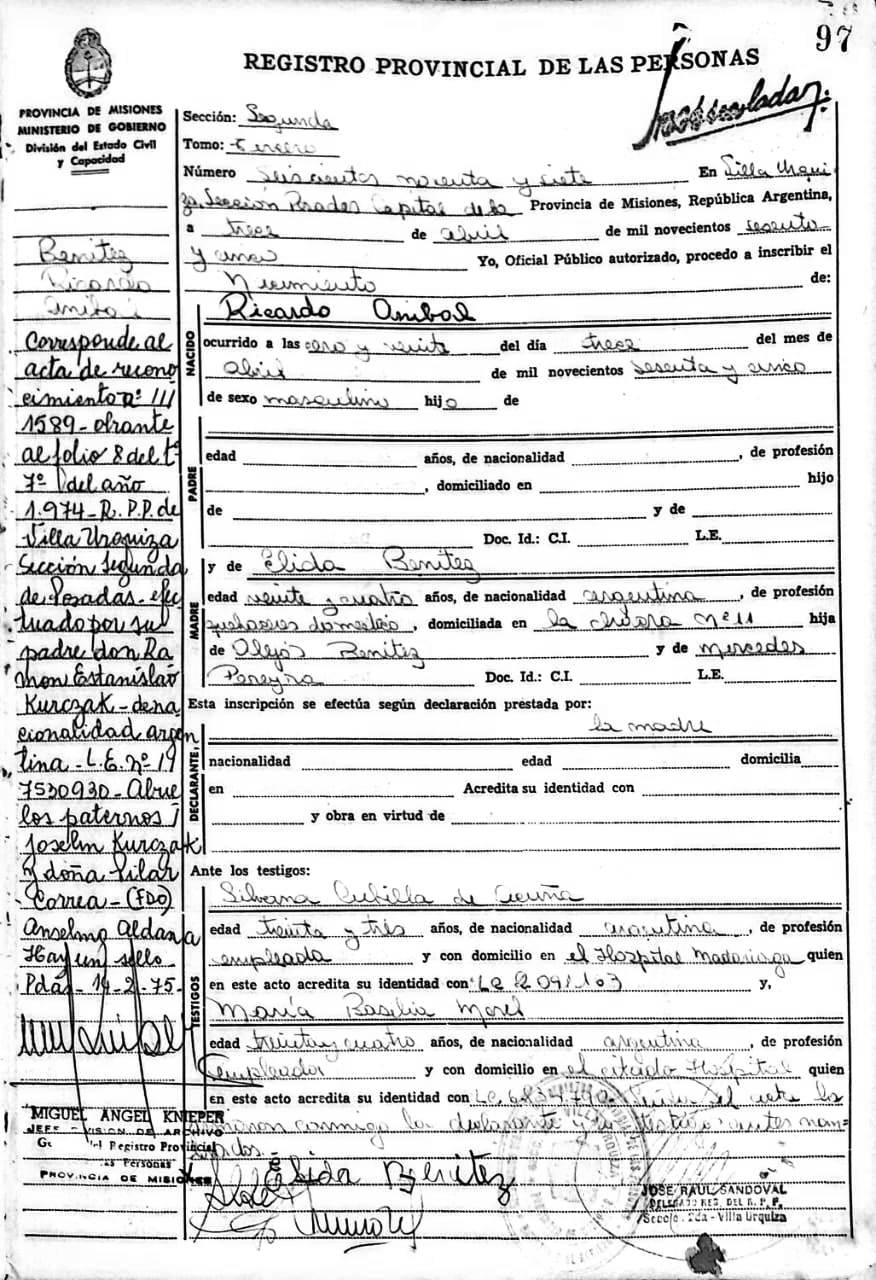 97
REGISTRO PROVINCIAL DE LAS PERSONAS
PROVINCIA DE MISIONES
MINISTERIO DE GOBIERNO
División del Estado Civil
y Capacidad
Benitez
Ricardo
Anibal
Corresponde al
acta de recono
cimiento nº III
1589 - obrante
al folio 8 del tº
7º del año
1.974 - R.P.P. de
Villa Urquiza
Sección Segunda
de Posadas - efec
tuado por su
padre don Ra
mon Estanislao
Kurczak - de na
cionalidad argen
tina - L.E. nº 19
7530930 - Abue
los paternos
Joselin Kurczak
y doña Pilar
Correa - (FDO)
Anselmo Aldana
Hay un sello
Pdas - 14-2-75-
MIGUEL ANGEL KNIEPER
JEFE DIVISION DE ARCHIVO
del Registro Provincial
las Personas
PROVINCIA DE MISIONES
Sección: Segunda
Tomo: tercero
Número seiscientos noventa y siete En Villa Urqui
za, Sección Capital de la Provincia de Misiones, República Argentina,
a trece de abril de mil novecientos sesenta
y cinco Yo, Oficial Público autorizado, procedo a inscribir el
Nacimiento de:
NACIDO
Ricardo Anibal
ocurrido a las cero y veinte del día trece del mes de
abril de mil novecientos sesenta y cinco
de sexo masculino hijo de
PADRE
edad años, de nacionalidad , de profesión
, domiciliado en hijo
de y de
Doc. Id.: C.I. L.E.
MADRE
y de Elida Benitez
edad veinte y cuatro años, de nacionalidad argentina, de profesión
quehaceres domestico, domiciliada en la chacra Nº 11 hija
de Alejo Benitez y de Mercedes
Pereyra Doc. Id.: C.I. L.E.
Esta inscripción se efectúa según declaración prestada por:
la madre
DECLARANTE
nacionalidad edad domicilia
en Acredita su identidad con
y obra en virtud de
Ante los testigos:
TESTIGOS
Silvana Cubilla de Acuña
edad treinta y tres años, de nacionalidad argentina, de profesión
empleada y con domicilio en el Hospital Madariaga quien
en este acto acredita su identidad con y,
María Basilia Morel
edad treinta y cuatro años, de nacionalidad argentina, de profesión
empleada y con domicilio en el citado Hospital quien
en este acto acredita su identidad con
conmigo la declarante y
Elida Benitez
JOSE RAUL SANDOVAL
DELEGADO REG. DEL R. P. P.
2da - Villa Urquiza